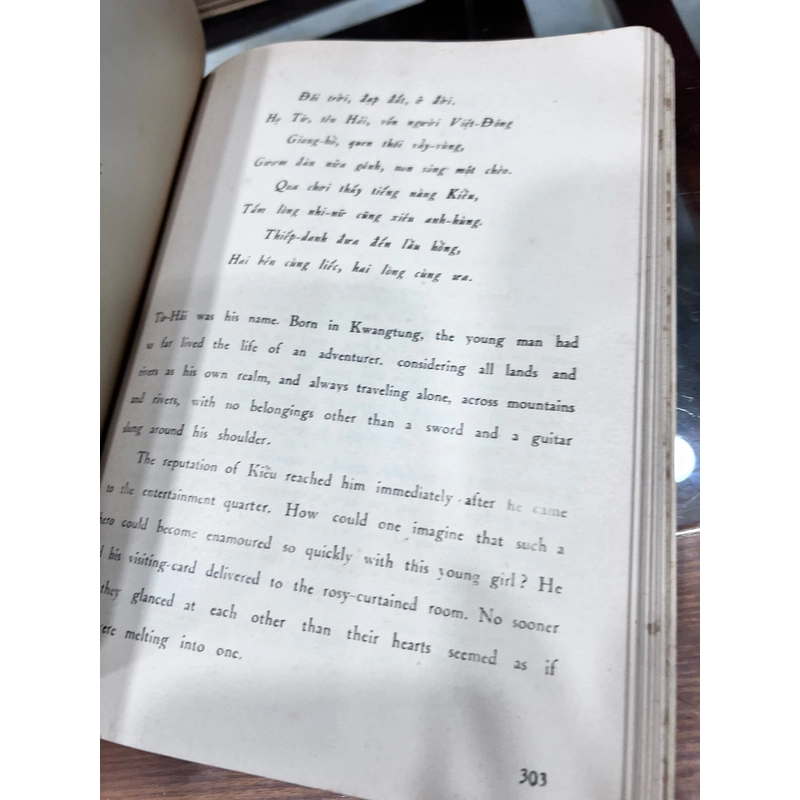 Đội trời, đạp đất, ở đời.
Họ Từ, tên Hải, vốn người Việt-Đông
Giang-hồ, quen thói vẫy-vùng,
Gươm đàn nửa gánh, non sông một chèo.
Qua chơi thấy tiếng nàng Kiều,
Tấm lòng nhi-nữ cũng xiêu anh-hùng.
Thiếp-danh đưa đến lầu hồng,
Hai bên cùng liếc, hai lòng cùng ưa.
Từ-Hải was his name. Born in Kwangtung, the young man had
so far lived the life of an adventurer. considering all lands and
rivers as his own realm, and always traveling alone, across mountains
and rivers, with no belongings other than a sword and a guitar
slung around his shoulder.
The reputation of Kiều reached him immediately after he came
to the entertainment quarter. How could one imagine that such a
hero could become enamoured so quickly with this young girl? He
his visiting-card delivered to the rosy-curtained room. No sooner
they glanced at each other than their hearts seemed as if
were melting into one.
303